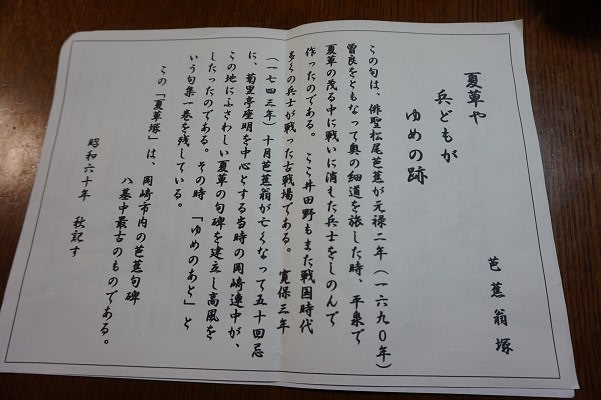 芭蕉翁塚
夏草や
兵どもが
ゆめの跡
この句は、俳聖松尾芭蕉が元禄二年(一六九〇年)
曽良をともなって奥の細道を旅した時、平泉で
夏草の茂る中に戦いに消えた兵士をしのんで
作ったのである。 ここ井田野もまた戦国時代
多くの兵士が戦った古戦場である。 寛保三年
(一七四三年)十月芭蕉翁が亡くなって五十回忌
に、菊里亭座明を中心とする当時の岡崎連中が、
この地にふさわしい夏草の句碑を建立し高風を
したったのである。その時 「ゆめのあと」と
いう句集一巻を残している。
この「夏草塚」は、岡崎市内の芭蕉句碑
八基中最古のものである。
昭和六十年 秋記す